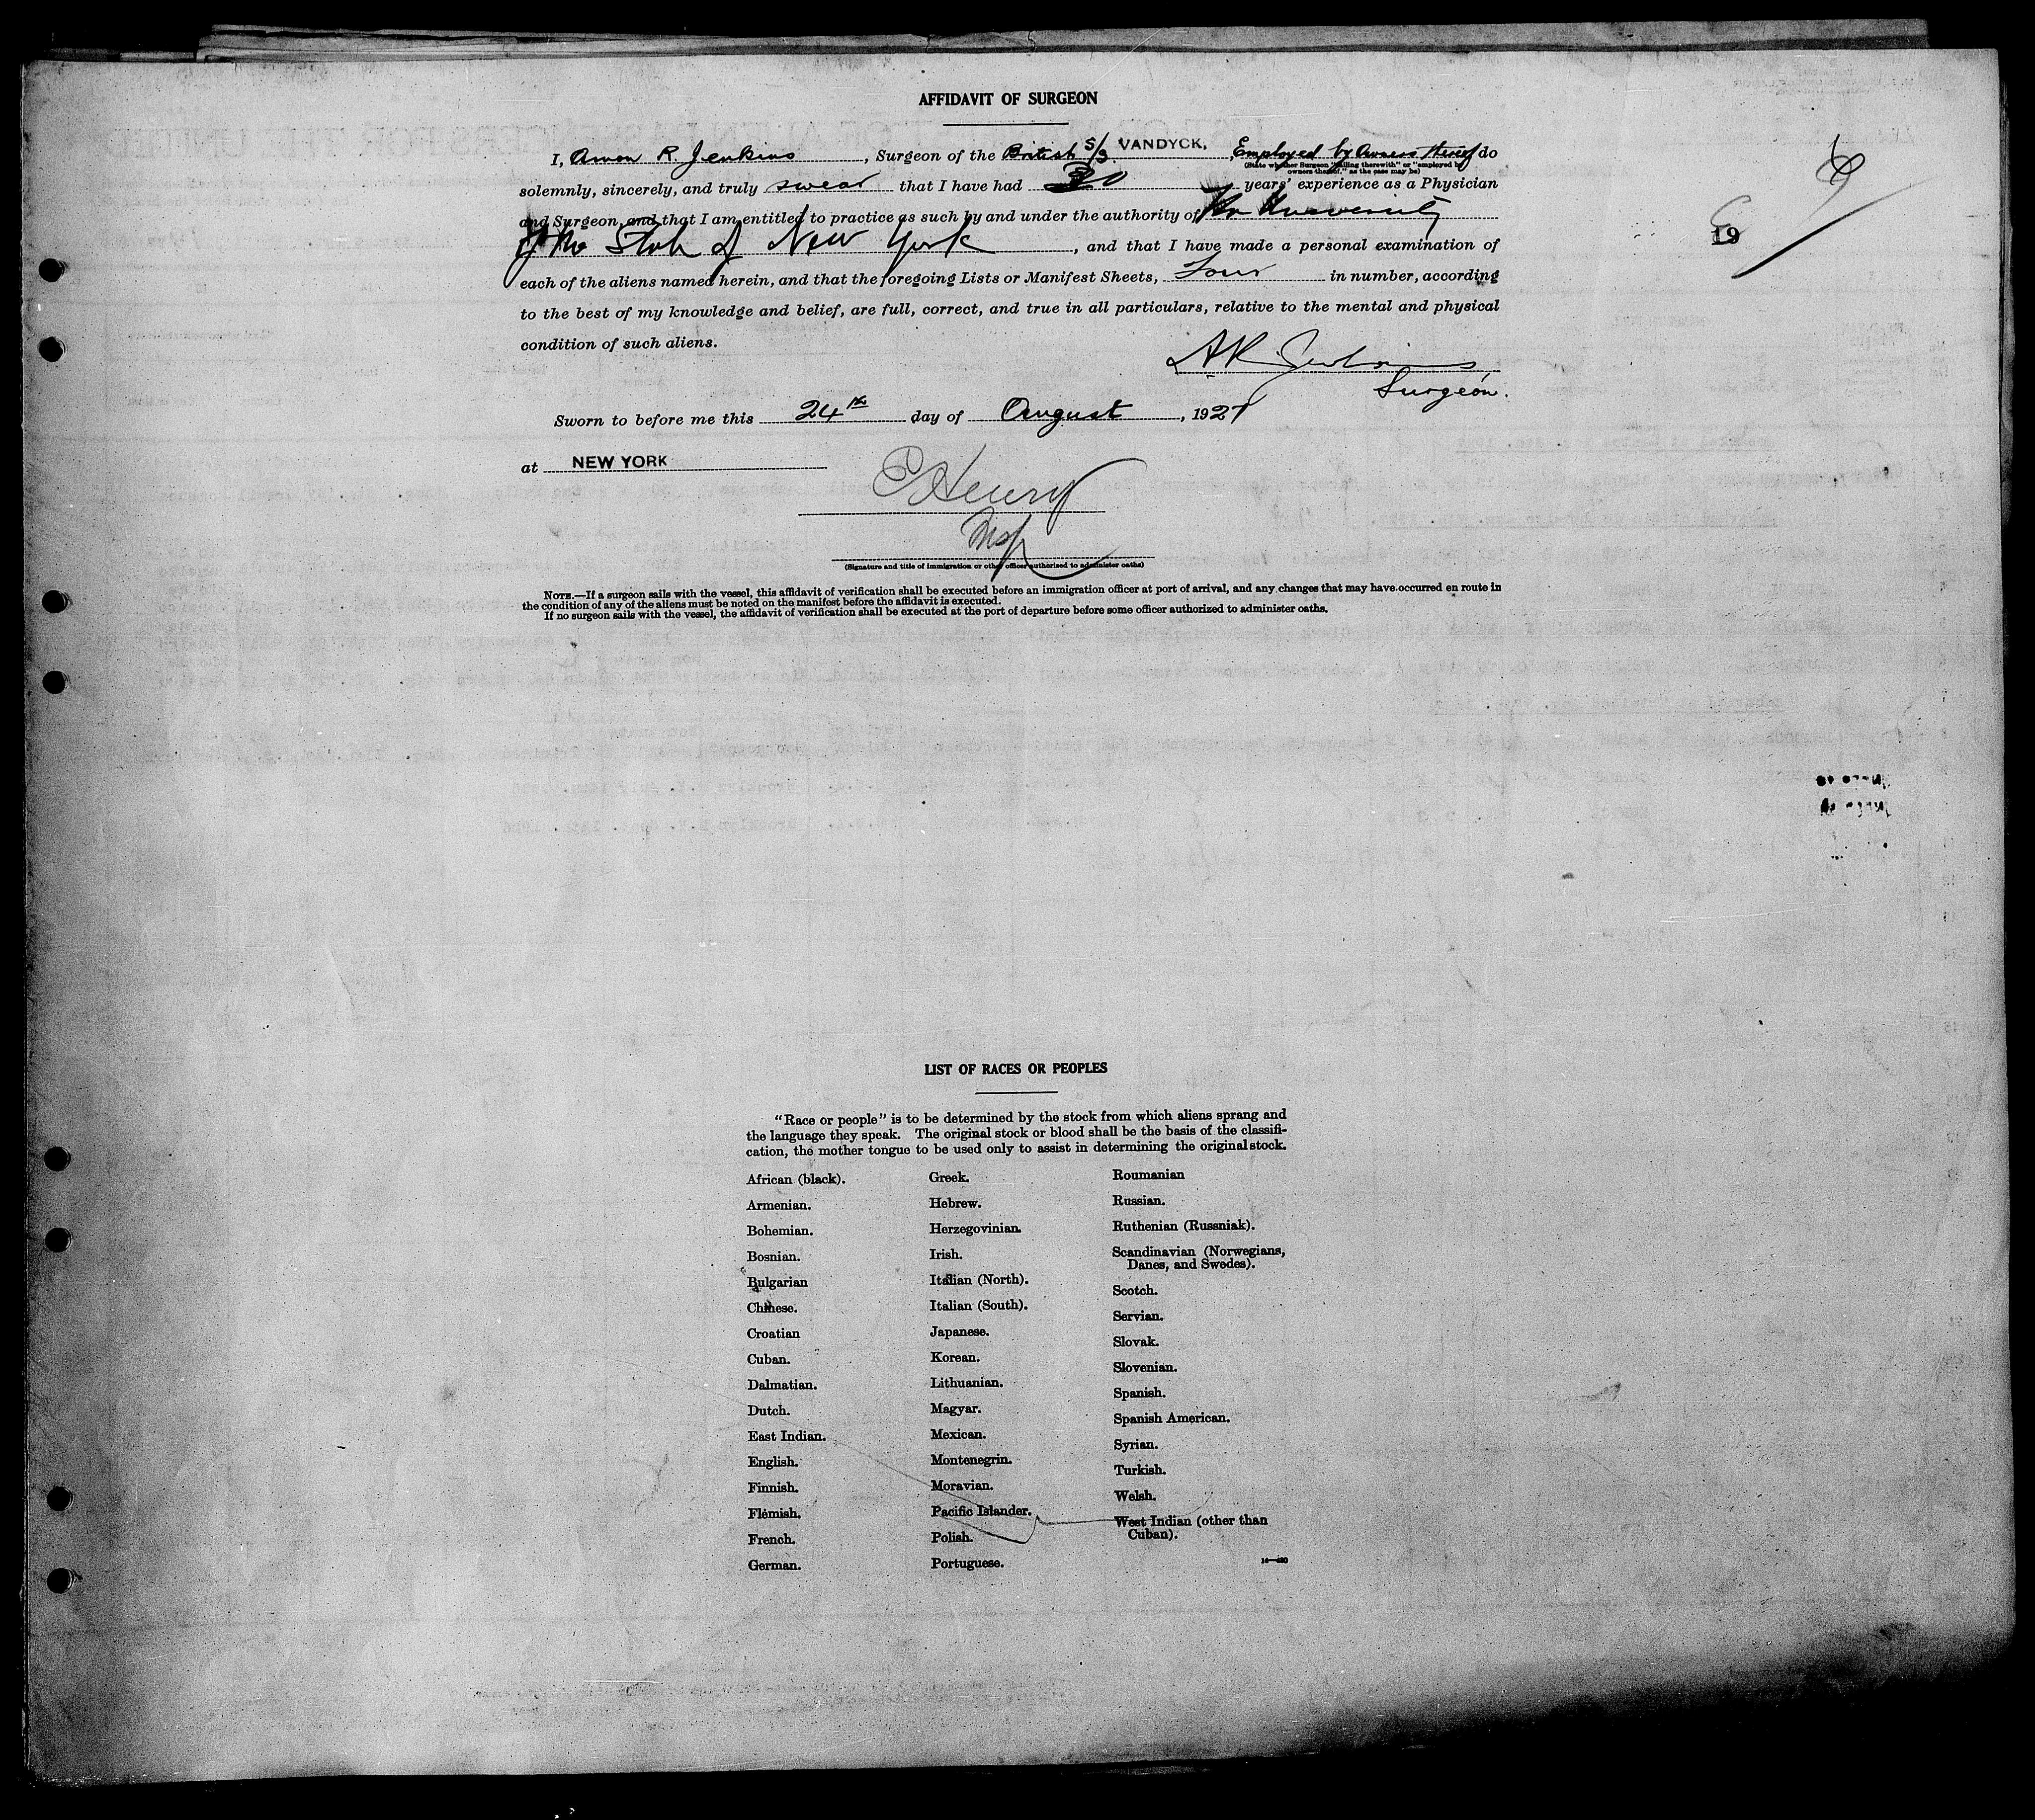 AFFIDAVIT OF SURGEON
I, Amon R. Jenkins, Surgeon of the British S/S VANDYCK, Employed by Owners thereof do
(State whether Surgeon "sailing therewith" or "employed by
owners thereof," as the case may be)
solemnly, sincerely, and truly swear that I have had 30 years' experience as a Physician
and Surgeon, and that I am entitled to practice as such by and under the authority of The University
of the State of New York, and that I have made a personal examination of
each of the aliens named herein, and that the foregoing Lists or Manifest Sheets, Four in number, according
to the best of my knowledge and belief, are full, correct, and true in all particulars, relative to the mental and physical
condition of such aliens.
A R Jenkins
Surgeon.
Sworn to before me this 24th day of August, 1927
at NEW YORK
E Henry
Insp
(Signature and title of immigration or other officer authorized to administer oaths)
NOTE.—If a surgeon sails with the vessel, this affidavit of verification shall be executed before an immigration officer at port of arrival, and any changes that may have occurred en route in
the condition of any of the aliens must be noted on the manifest before the affidavit is executed.
If no surgeon sails with the vessel, the affidavit of verification shall be executed at the port of departure before some officer authorized to administer oaths.
19
LIST OF RACES OR PEOPLES
"Race or people" is to be determined by the stock from which aliens sprang and
the language they speak. The original stock or blood shall be the basis of the classifi-
cation, the mother tongue to be used only to assist in determining the original stock.
African (black).
Armenian.
Bohemian.
Bosnian.
Bulgarian
Chinese.
Croatian
Cuban.
Dalmatian.
Dutch.
East Indian.
English.
Finnish.
Flemish.
French.
German.
Greek.
Hebrew.
Herzegovinian.
Irish.
Italian (North).
Italian (South).
Japanese.
Korean.
Lithuanian.
Magyar.
Mexican.
Montenegrin.
Moravian.
Pacific Islander.
Polish.
Portuguese.
Roumanian
Russian.
Ruthenian (Russniak).
Scandinavian (Norwegians,
Danes, and Swedes).
Scotch.
Servian.
Slovak.
Slovenian.
Spanish.
Spanish American.
Syrian.
Turkish.
Welsh.
West Indian (other than
Cuban).